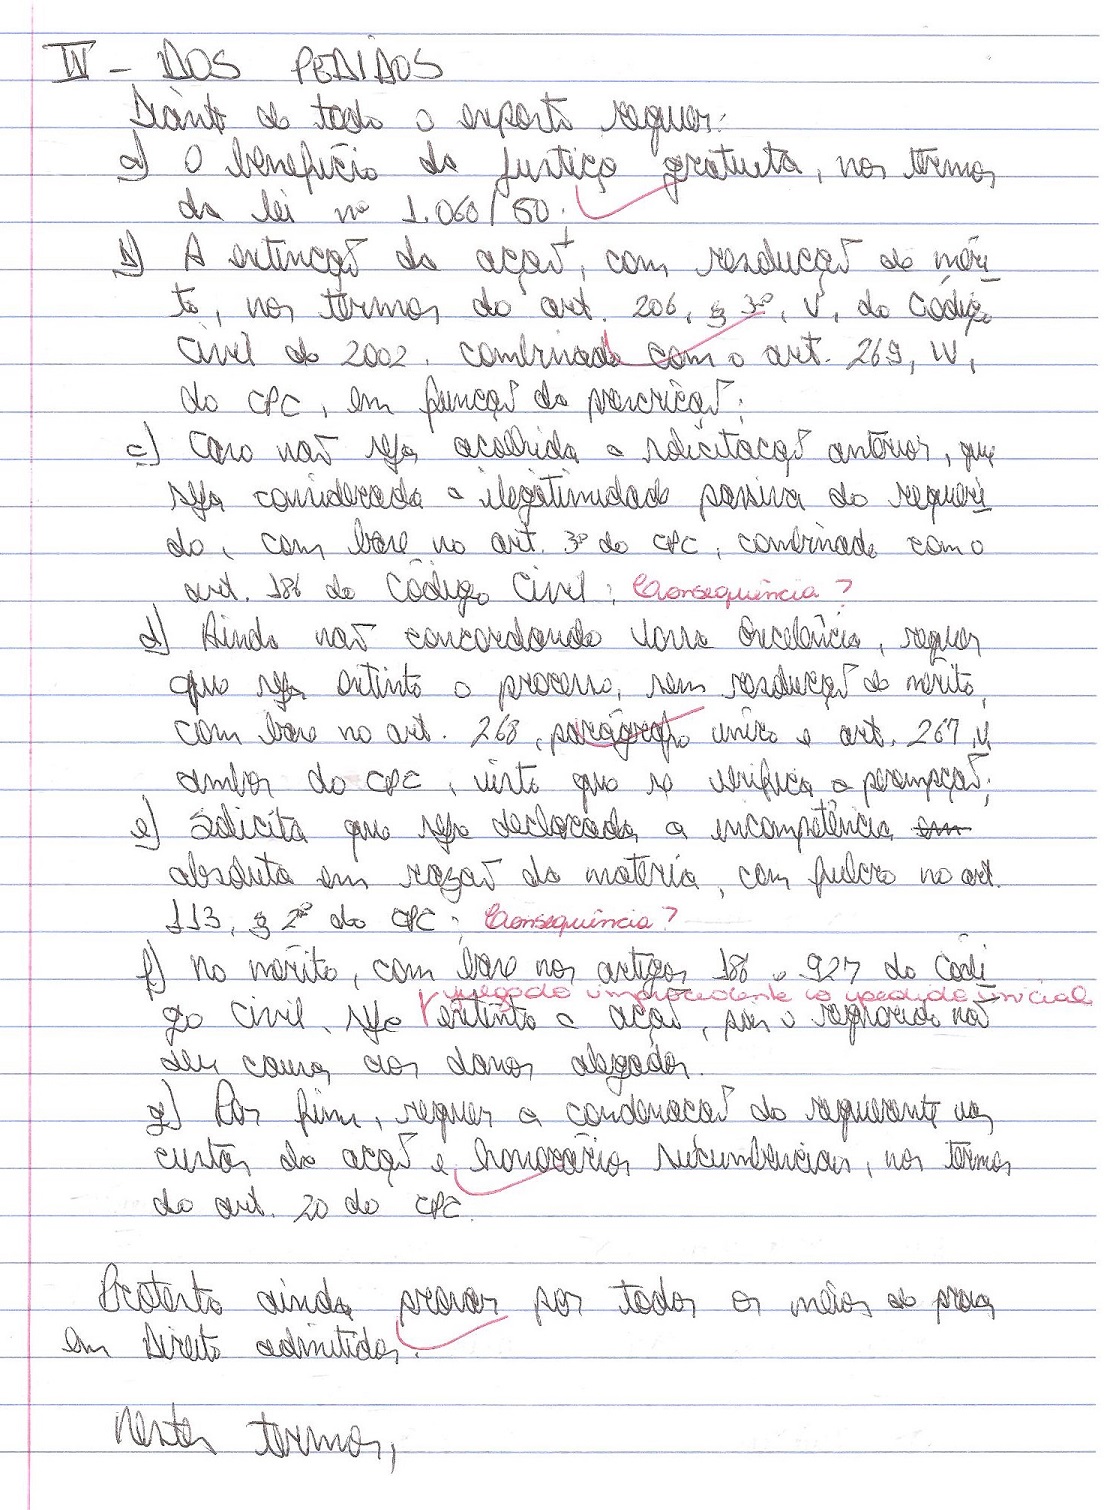 IV - DOS PEDIDOS
Diante de todo o exposto requer:
a) O benefício da justiça gratuita, nos termos
da lei nº 1.060/50.
b) A extinção da ação, com resolução de méri
to, nos termos do art. 206, § 3º, V, do Código
Civil de 2002, combinado com o art. 269, IV,
do CPC, em função da prescrição;
c) Caso não seja acolhida a solicitação anterior, que
seja considerada a ilegitimidade passiva do requeri
do, com base no art. 3º do CPC, combinado com o
art. 186 do Código Civil; Consequência?
d) Ainda não concordando Vossa Excelência, requer
que seja extinto o processo, sem resolução de mérito,
com base no art. 268, parágrafo único e art. 267, V,
ambos do CPC, visto que se verifica a perempção;
e) Solicita que seja declarada a incompetência
absoluta em razão da matéria, com fulcro no art.
113, § 2º do CPC; Consequência?
f) No mérito, com base nos artigos 186 e 927 do Códi
julgado improcedente o pedido inicial
go Civil, seja extinta a ação, pois o requerido não
deu causa aos danos alegados.
g) Por fim, requer a condenação do requerente nas
custas da ação e honorários sucumbenciais, nos termos
do art. 20 do CPC.
Protesta ainda provar por todos os meios de prova
em Direito admitidos.
Nestes termos,